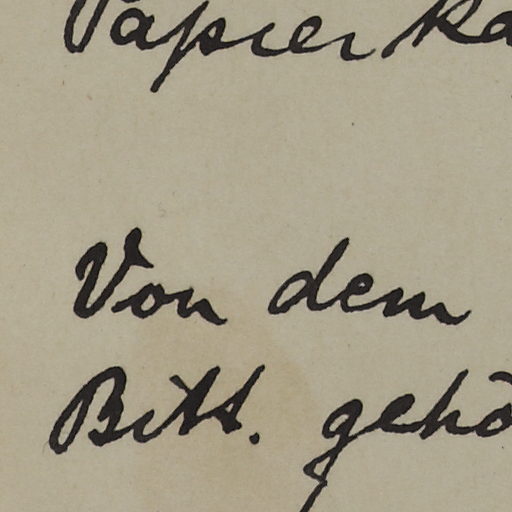 Papierka
Von dem
Bitt. gehö